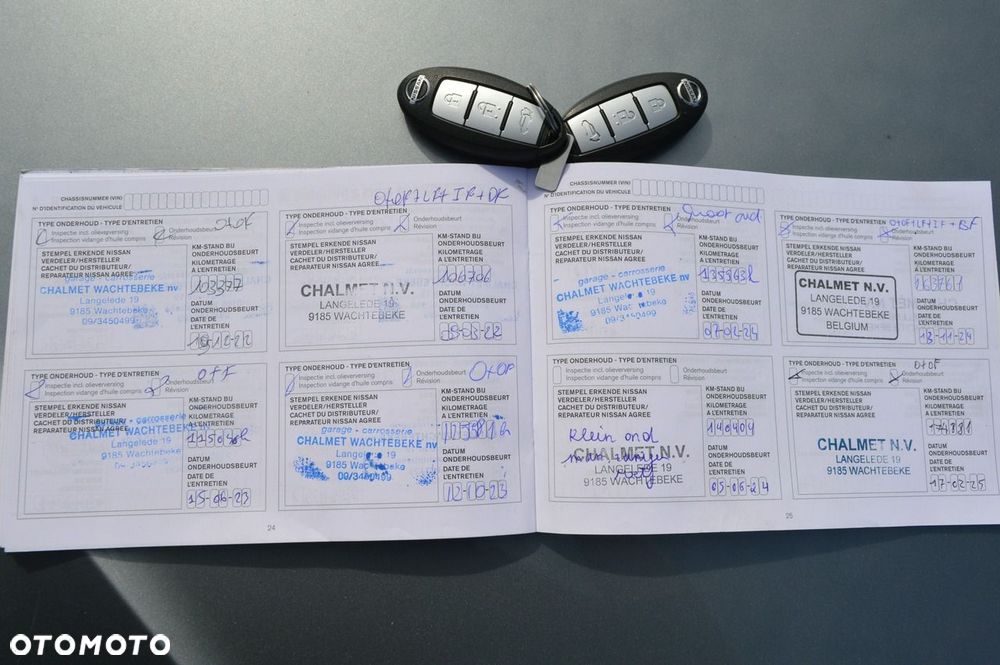 CHASSISNUMMER (VIN)
N° D'IDENTIFICATION DU VEHICULE
TYPE ONDERHOUD - TYPE D'ENTRETIEN
O+OF
Inspectie incl. olieverversing
Inspection vidange d'huile compris
Onderhoudsbeurt
Révision
STEMPEL ERKENDE NISSAN
VERDELER/HERSTELLER
CACHET DU DISTRIBUTEUR/
REPARATEUR NISSAN AGREE
KM-STAND BIJ
ONDERHOUDSBEURT
KILOMETRAGE
A L'ENTRETIEN
103377
garage - carrosserie
CHALMET WACHTEBEKE nv
Langelede 19
9185 Wachtebeke
09/3450499
DATUM
ONDERHOUDSBEURT
DATE DE
L'ENTRETIEN
12-22
TYPE ONDERHOUD - TYPE D'ENTRETIEN
Inspectie incl. olieverversing
Inspection vidange d'huile compris
Onderhoudsbeurt
Révision
STEMPEL ERKENDE NISSAN
VERDELER/HERSTELLER
CACHET DU DISTRIBUTEUR/
REPARATEUR NISSAN AGREE
KM-STAND BIJ
ONDERHOUDSBEURT
KILOMETRAGE
A L'ENTRETIEN
106706
CHALMET N.V.
LANGELEDE 19
9185 WACHTEBEKE
DATUM
ONDERHOUDSBEURT
DATE DE
L'ENTRETIEN
TYPE ONDERHOUD - TYPE D'ENTRETIEN
Inspectie incl. olieverversing
Inspection vidange d'huile compris
Onderhoudsbeurt
Révision
STEMPEL ERKENDE NISSAN
VERDELER/HERSTELLER
CACHET DU DISTRIBUTEUR/
REPARATEUR NISSAN AGREE
KM-STAND BIJ
ONDERHOUDSBEURT
KILOMETRAGE
A L'ENTRETIEN
garage - carrosserie
CHALMET WACHTEBEKE nv
Langelede 19
9185 Wachtebeke
DATUM
ONDERHOUDSBEURT
DATE DE
L'ENTRETIEN
15-06-23
TYPE ONDERHOUD - TYPE D'ENTRETIEN
O+OF
Inspectie incl. olieverversing
Inspection vidange d'huile compris
Onderhoudsbeurt
Révision
STEMPEL ERKENDE NISSAN
VERDELER/HERSTELLER
CACHET DU DISTRIBUTEUR/
REPARATEUR NISSAN AGREE
KM-STAND BIJ
ONDERHOUDSBEURT
KILOMETRAGE
A L'ENTRETIEN
garage - carrosserie
CHALMET WACHTEBEKE nv
Langelede 19
9185 Wachtebeke
09/3450499
DATUM
ONDERHOUDSBEURT
DATE DE
L'ENTRETIEN
12-10-23
24
CHASSISNUMMER (VIN)
N° D'IDENTIFICATION DU VEHICULE
TYPE ONDERHOUD - TYPE D'ENTRETIEN
Groot ond
Inspectie incl. olieverversing
Inspection vidange d'huile compris
Onderhoudsbeurt
Révision
STEMPEL ERKENDE NISSAN
VERDELER/HERSTELLER
CACHET DU DISTRIBUTEUR/
REPARATEUR NISSAN AGREE
KM-STAND BIJ
ONDERHOUDSBEURT
KILOMETRAGE
A L'ENTRETIEN
garage - carrosserie
CHALMET WACHTEBEKE nv
Langelede 19
9185 Wachtebeke
09/3450499
DATUM
ONDERHOUDSBEURT
DATE DE
L'ENTRETIEN
07-02-24
TYPE ONDERHOUD - TYPE D'ENTRETIEN
O+OF+LF+IF+BF
Inspectie incl. olieverversing
Inspection vidange d'huile compris
Onderhoudsbeurt
Révision
STEMPEL ERKENDE NISSAN
VERDELER/HERSTELLER
CACHET DU DISTRIBUTEUR/
REPARATEUR NISSAN AGREE
KM-STAND BIJ
ONDERHOUDSBEURT
KILOMETRAGE
A L'ENTRETIEN
163761
CHALMET N.V.
LANGELEDE 19
9185 WACHTEBEKE
BELGIUM
DATUM
ONDERHOUDSBEURT
DATE DE
L'ENTRETIEN
13-11-24
TYPE ONDERHOUD - TYPE D'ENTRETIEN
Inspectie incl. olieverversing
Inspection vidange d'huile compris
Onderhoudsbeurt
Révision
STEMPEL ERKENDE NISSAN
VERDELER/HERSTELLER
CACHET DU DISTRIBUTEUR/
REPARATEUR NISSAN AGREE
KM-STAND BIJ
ONDERHOUDSBEURT
KILOMETRAGE
A L'ENTRETIEN
140404
Klein ond
CHALMET N.V.
LANGELEDE 19
9185 WACHTEBEKE
DATUM
ONDERHOUDSBEURT
DATE DE
L'ENTRETIEN
05-06-24
TYPE ONDERHOUD - TYPE D'ENTRETIEN
O+OF
Inspectie incl. olieverversing
Inspection vidange d'huile compris
Onderhoudsbeurt
Révision
STEMPEL ERKENDE NISSAN
VERDELER/HERSTELLER
CACHET DU DISTRIBUTEUR/
REPARATEUR NISSAN AGREE
KM-STAND BIJ
ONDERHOUDSBEURT
KILOMETRAGE
A L'ENTRETIEN
174881
CHALMET N.V.
LANGELEDE 19
9185 WACHTEBEKE
DATUM
ONDERHOUDSBEURT
DATE DE
L'ENTRETIEN
17-02-25
25
OTOMOTO